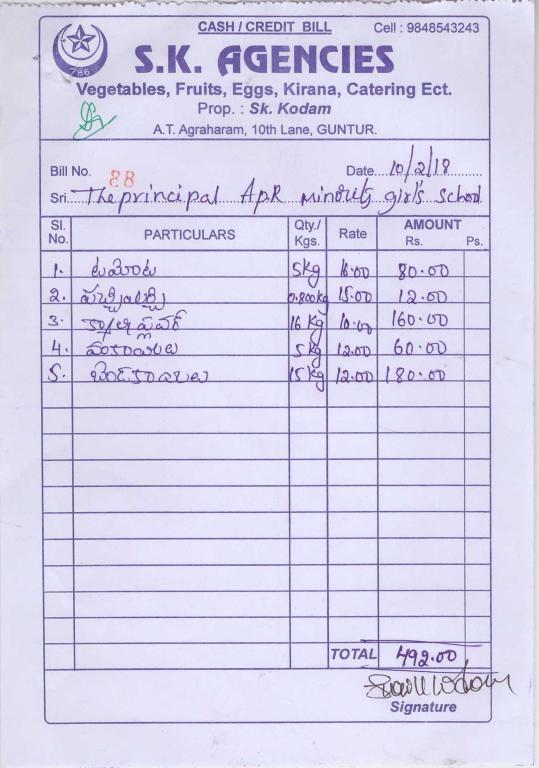 CASH / CREDIT BILL Cell : 9848543243
786
S.K. AGENCIES
Vegetables, Fruits, Eggs, Kirana, Catering Ect.
Prop. : Sk. Kodam
A.T. Agraharam, 10th Lane, GUNTUR.
Bill No. 88 Date 10/2/18
Sri. The principal APR minority girl's school
Sl. No. PARTICULARS Qty./ Kgs. Rate AMOUNT Rs. Ps.
1. టమోట 5kg 16.00 80.00
2. పచ్చిమిర్చి 0.800kg 15.00 12.00
3. 16 kg 10.00 160.00
4. వంకాయలు 5kg 12.00 60.00
5. బెండకాయలు 15kg 12.00 180.00
TOTAL 492.00
Signature